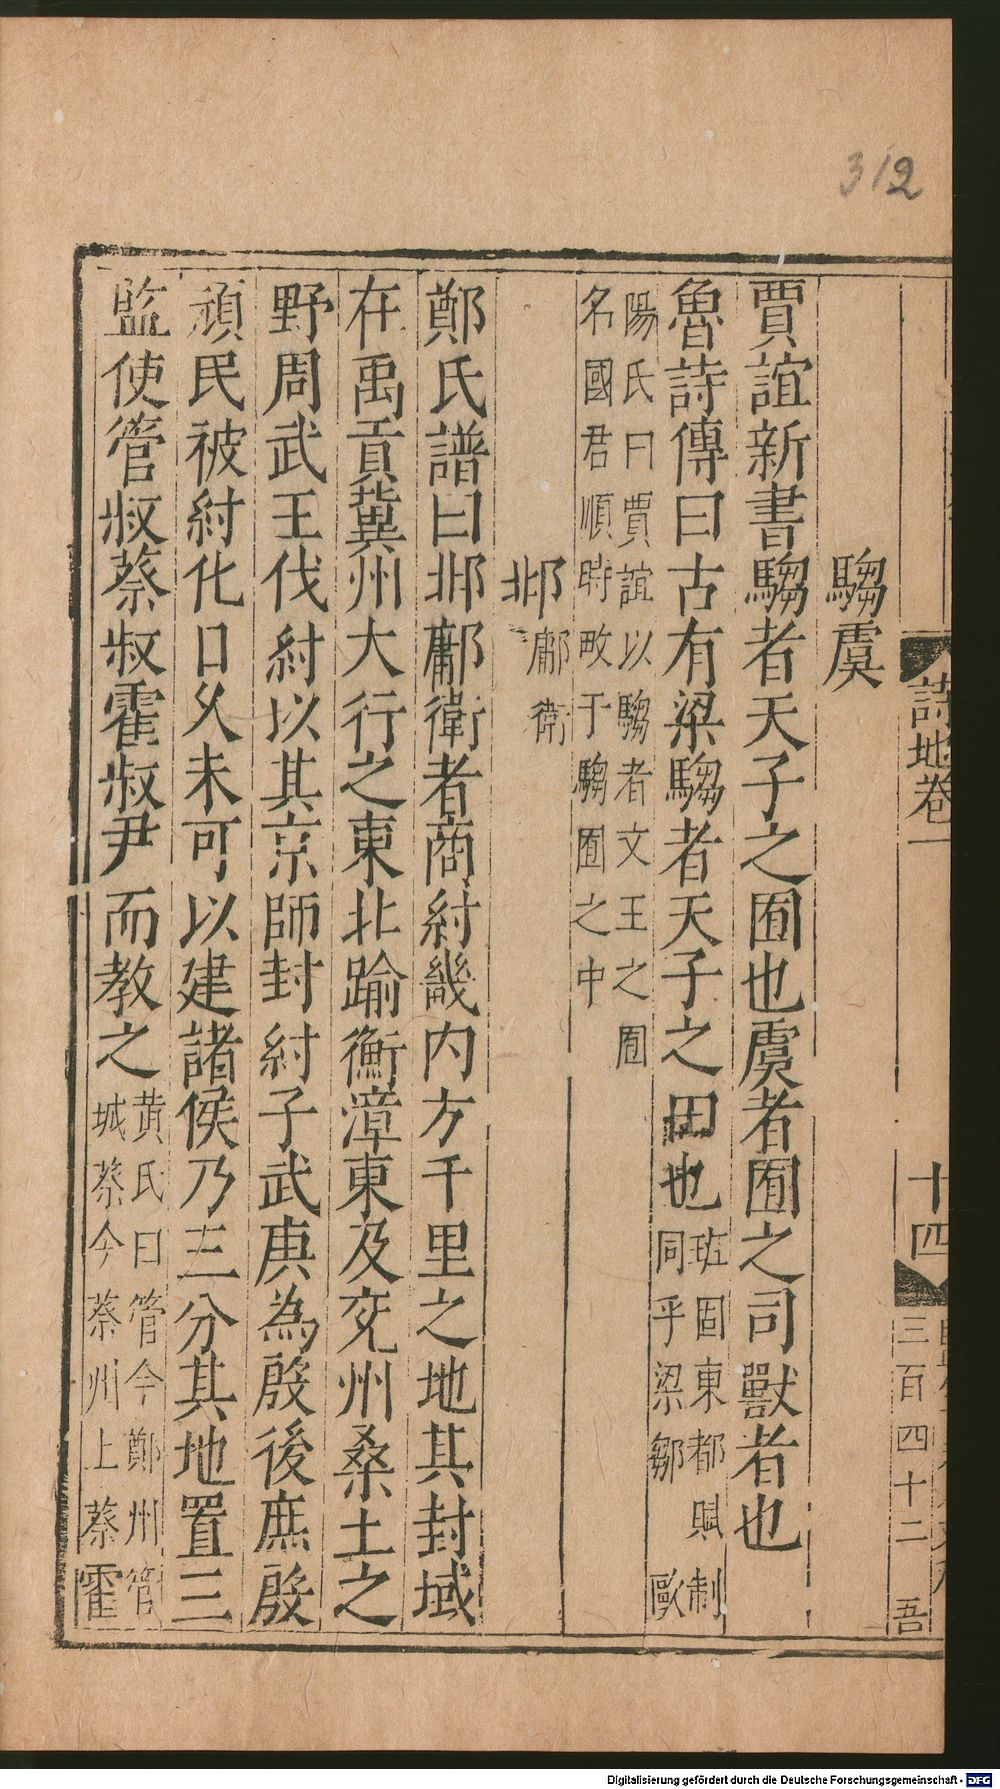 312
詩地卷一
十四
三百四十二
吾
騶虞
賈誼新書騶者天子之囿也虞者囿之司獸者也
魯詩傳曰古有梁騶者天子之田也班固東都賦制
同乎梁鄒歐
陽氏曰賈誼以騶者文王之囿
名國君順時畋于騶囿之中
邶鄘衛
鄭氏譜曰邶鄘衛者商紂畿内方千里之地其封域
在禹貢冀州大行之東北踰衡漳東及兖州桑土之
野周武王伐紂以其京師封紂子武庚為殷後庶殷
頑民被紂化日乆未可以建諸侯乃三分其地置三
監使管叔蔡叔霍叔尹而教之黄氏曰管今鄭州管
城蔡今蔡州上蔡霍
Digitalisierung gefördert durch die Deutsche Forschungsgemeinschaft - DFG